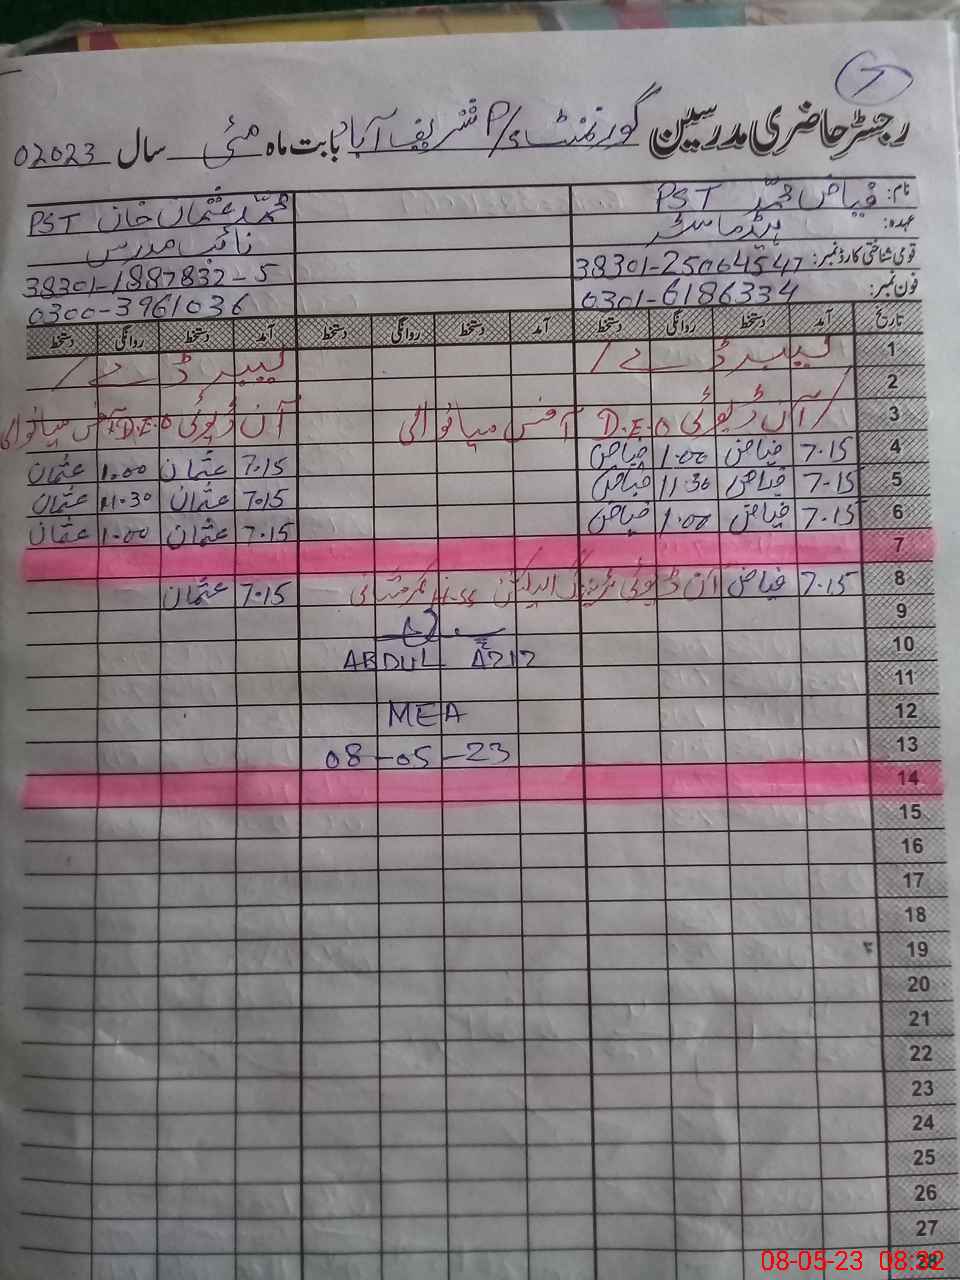 7
رجسٹر حاضری مدرسین گورنمنٹ P/S شریف آباد بابت ماہ مئی سال 02023
نام: فیاض محمد PST محمد عثمان خان PST
عہدہ: ہیڈ ماسٹر نائب مدرس
قومی شناختی کارڈ نمبر: 38301-25064547 38301-1887832-5
فون نمبر: 0301-6186334 0300-3961036
تاریخ آمد دستخط روانگی دستخط آمد دستخط روانگی دستخط آمد دستخط روانگی دستخط
1 لیبر ڈے / لیبر ڈے /
2
3 / آن ڈیوٹی D.E.O آفس میانوالی آن ڈیوٹی D.E.O آفس میانوالی
4 7.15 فیاض 1.00 فیاض 7.15 عثمان 1.00 عثمان
5 7.15 فیاض 11.30 فیاض 7.15 عثمان 11.30 عثمان
6 7.15 فیاض 1.00 فیاض 7.15 عثمان 1.00 عثمان
7
8 7.15 فیاض آن ڈیوٹی 7.15 عثمان
9
10 ABDUL AZIZ
11
12 MEA
13 08-05-23
14
15
16
17
18
19
20
21
22
23
24
25
26
27
28
08-05-23 08:32